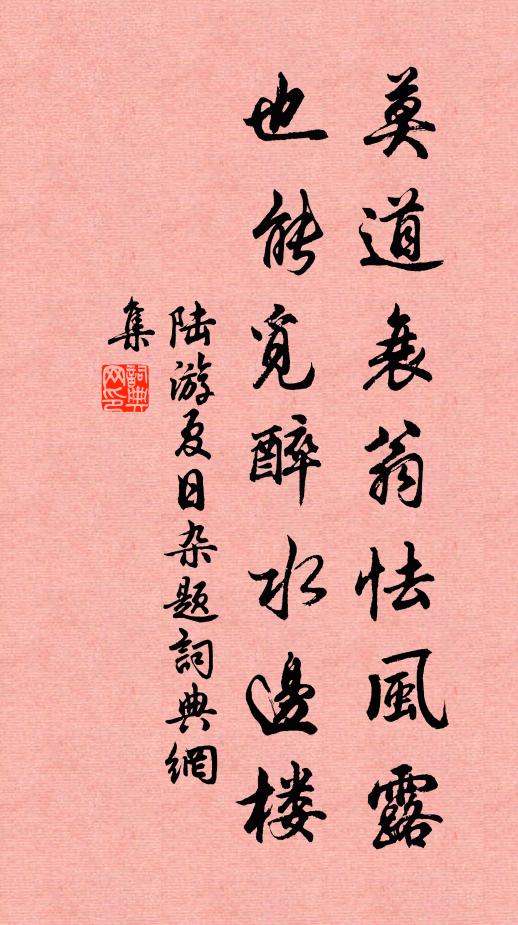 莫道衰翁怯風露
也能覓醉水邊楼
陆游夏日杂题詞典網
集
詞典网印